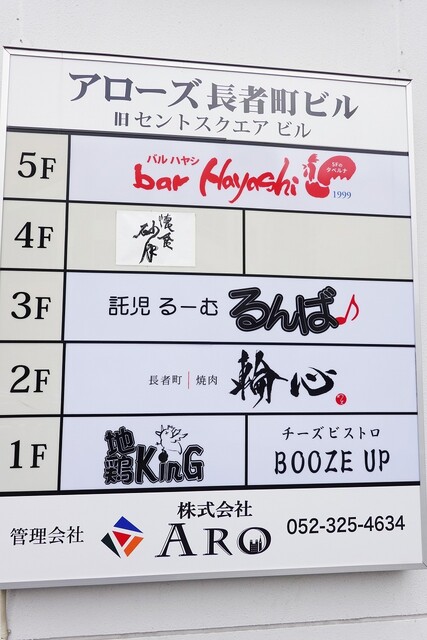 アローズ長者町ビル
旧 セントスクエア ビル
5F
バル ハヤシ
bar Hayashi
5Fのタベルナ
1999
4F
3F
託児 るーむ るんば♪
2F
長者町 | 焼肉 輪心
1F
地鶏KinG
チーズビストロ
BOOZE UP
管理会社
株式会社
ARO
052-325-4634